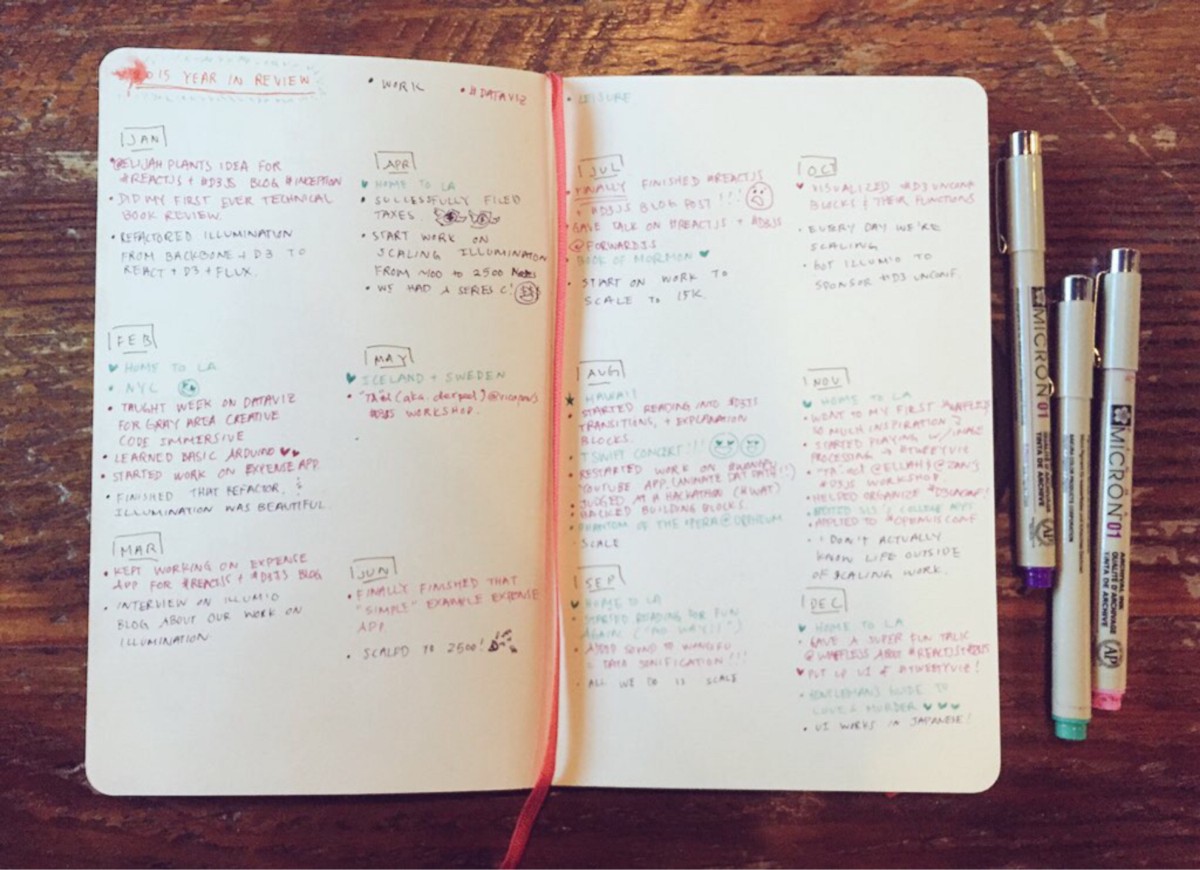 2015 YEAR IN REVIEW
• WORK
• #DATAVIZ
• LEISURE
JAN
• @ELIJAH PLANTS IDEA FOR
#REACTJS + #D3JS BLOG #INCEPTION
• DID MY FIRST EVER TECHNICAL
BOOK REVIEW.
• REFACTORED ILLUMINATION
FROM BACKBONE + D3 TO
REACT + D3 + FLUX.
FEB
HOME TO LA
• NYC
• TAUGHT WEEK ON DATAVIZ
FOR GRAY AREA CREATIVE
CODE IMMERSIVE
• LEARNED BASIC ARDUINO
• STARTED WORK ON EXPENSE APP
• FINISHED THAT REFACTOR,
ILLUMINATION WAS BEAUTIFUL.
MAR
• KEPT WORKING ON EXPENSE
APP FOR #REACTJS + #D3JS BLOG
• INTERVIEW ON ILLUMIO
BLOG ABOUT OUR WORK ON
ILLUMINATION
APR
HOME TO LA
• SUCCESSFULLY FILED
TAXES.
• START WORK ON
SCALING ILLUMINATION
FROM ~100 TO 2500
• WE HAD A SERIES C!
MAY
ICELAND + SWEDEN
• "TA'ed (aka. derped)
#D3JS WORKSHOP.
JUN
• FINALLY FINISHED THAT
"SIMPLE" EXAMPLE EXPENSE
APP
• SCALED TO 2500!
JUL
• FINALLY FINISHED #REACTJS
+ #D3JS BLOG POST!!!
• GAVE TALK ON #REACTJS + #D3JS
@FORWARDJS
• BOOK OF MORMON
• START ON WORK TO
SCALE TO 15K.
AUG
HAWAII
• STARTED READING INTO #D3JS
TRANSITIONS, + EXPLANATION
BLOCKS.
• T SWIFT CONCERT!!!
• RESTARTED WORK ON
YOUTUBE APP.
• JUDGED AT A HACKATHON (#WAT)
• HACKED BUILDING BLOCKS.
• PHANTOM OF THE OPERA @ORPHEUM
• SCALE
SEP
HOME TO LA
• STARTED READING FOR FUN
AGAIN! ("NO WAY!!")
• ADDED SOUND TO
DATA SONIFICATION!!!
• ALL WE DO IS SCALE
OCT
VISUALIZED #D3UNCONF
BLOCKS & THEIR FUNCTIONS
• EVERY DAY WE'RE
SCALING
• GOT ILLUMIO TO
SPONSOR #D3 UNCONF.
NOV
HOME TO LA
• WENT TO MY FIRST #WAFFLEJS
SO MUCH INSPIRATION
• STARTED PLAYING W/ IMAGE
PROCESSING → #TWEETYVIZ
#D3JS WORKSHOP.
• HELPED ORGANIZE #D3UNCONF!
• COLLEGE APPS
• APPLIED TO #OPENVISCONF
• I DON'T ACTUALLY
KNOW LIFE OUTSIDE
OF SCALING WORK.
DEC
HOME TO LA
• GAVE A SUPER FUN TALK
@WAFFLEJS ABOUT #REACTJS+#D3JS
PUT UP UI & #TWEETYVIZ!
• GENTLEMAN'S GUIDE TO
LOVE & MURDER
• UI WORKS IN JAPANESE!
MICRON 01
ARCHIVAL INK
QUALITÉ D'ARCHIVAGE
TINTA DE ARCHIVE
AP
MICRON 01
ARCHIVAL INK
QUALITÉ D'ARCHIVAGE
TINTA DE ARCHIVE
AP